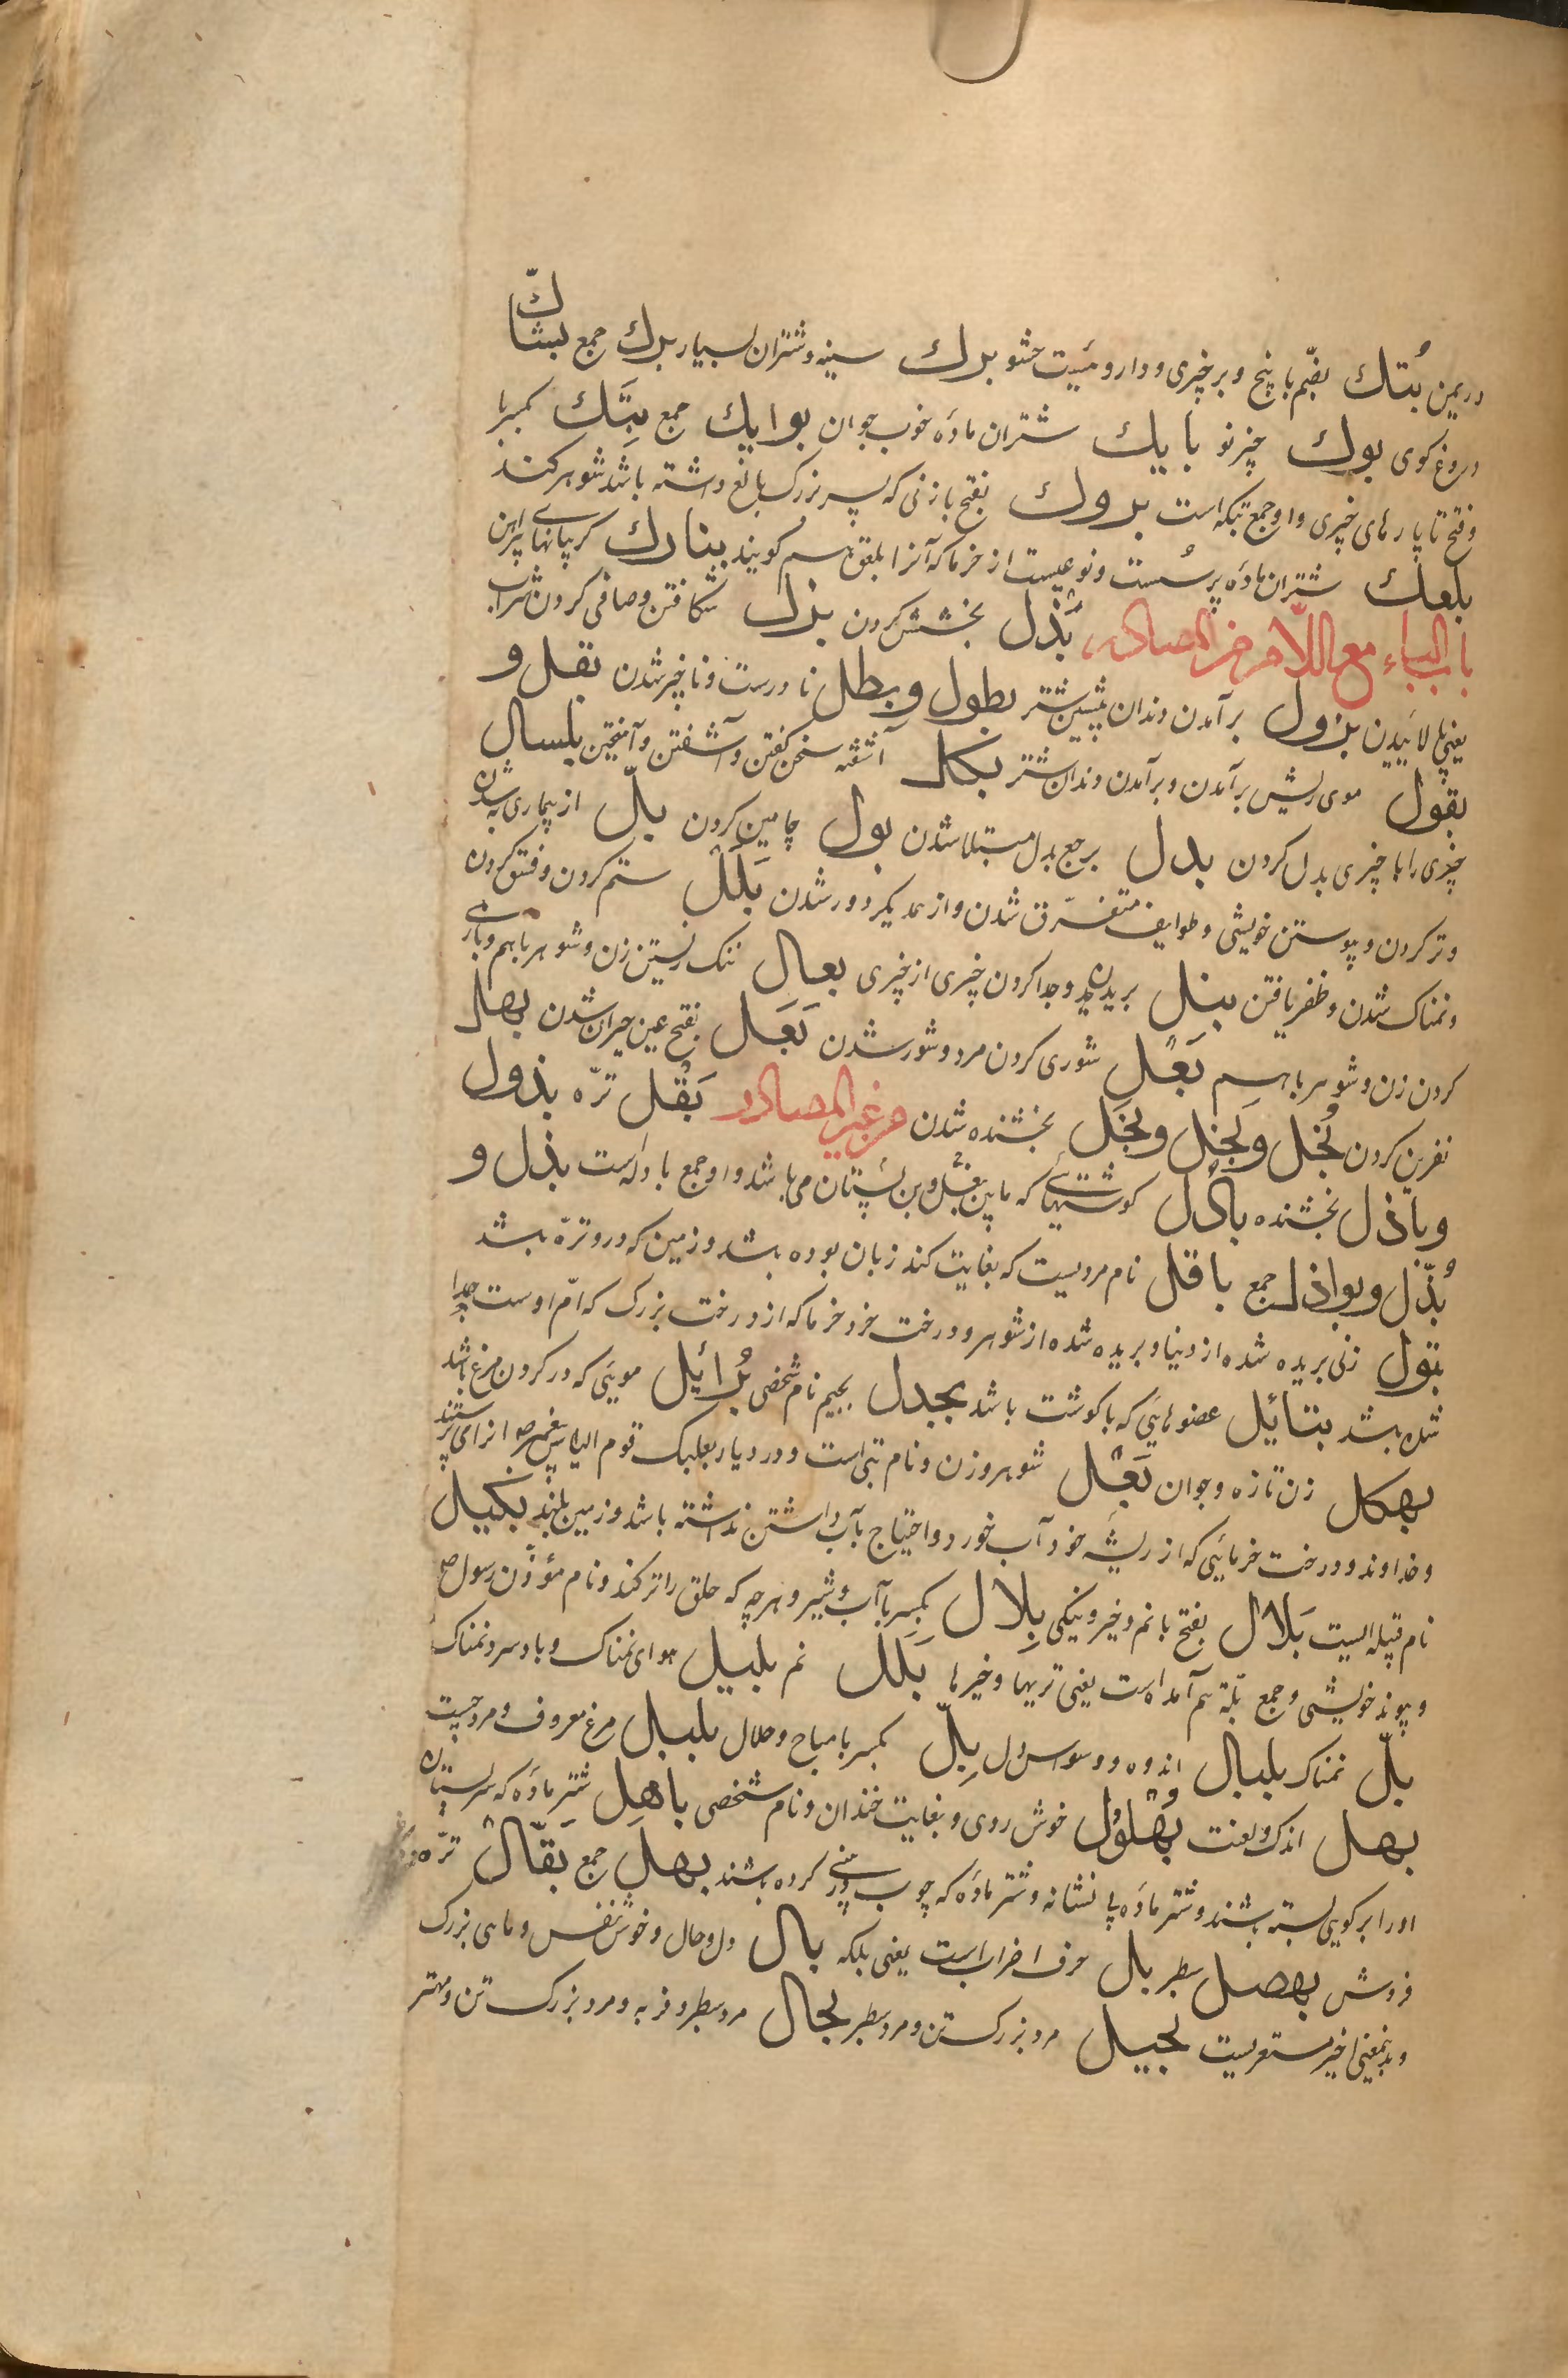 در یمن بُتك بضم با پنج و بر چیزی و دارو مَیِت حشو برك سینه و شتران بسیار برك جمع بشاكّ
دروغ کوی بوك چیز نو بایك شتران ماده خوب جوان بوایك جمع بِتَك بکسر با
و فتح تا پارهای چیزی و او جمع بتکه است بروك بفتح با زنی که پسر بزرک بالغ داشته باشد شوهر کند
بلعك شتران ماده پر سُست و نوعیست از خرما که آنرا بلعق هم کویند بنارك کریبانهاے پیراهن
باب الباء مع اللام من المصادر بَذل بخشش کردن بزل شکافتن و صافی کردن شراب
یعنی پالائیدن بزول بر آمدن دندان پیشین شتر بطول و بطل نا درست و ناچیز شدن بقل و
بقول موی ریش بر آمدن و بر آمدن دندان شتر بکل آشفته سخن کفتن و آشفتن و آمیختن بلسال
چیزی را با چیزی بدل کردن بدل برجع بدل مبتلا شدن بول چامین کردن بلّ از بیماری به شدن
و تر کردن و پیوستن خویشی و طوایف متفرّق شدن و از همدیکر دور شدن بَلَل ستم کردن و فسق کردن
و نمناک شدن و ظفر یافتن بتل بریدن و جدا کردن چیزی از چیزی بعال نزدیستن زن و شوهر با هم و بازے
کردن زن و شوهر باهم بَعْل شوری کردن مرد و شور شدن بَعَل بفتح عین حیران شدن بهل
نفرین کردن بُخل و بَخل و بَخَل بخشنده شدن من غیر المصادر بَقْل ترّه بذول
و باذل بخشنده بادل کوشتهاے که مابین بغل و بن پستان می باشد و او جمع بادله است بذل و
بُذّل و بواذل جمع باقل نام مردیست که بغایت کند زبان بوده باشد و زمین که درو ترّه باشد
بتول زنی بریده شده از دنیا و بریده شده از شوهر و درخت خرد خرما که از درخت بزرک که امّ اوست جدا
شده باشد بتائل عضوهایی که با کوشت باشد بجدل بجیم نام شخصی بُرائل مویی که در کردن مرغ باشد
بهکل زن تازه و جوان بَعْل شوهر و زن و نام بتی است و در دیار بعلبک قوم الیاس پیغمبر انرا می پرستیدند
و خداوند و درخت خرمایی که از ریشه خود آب خورد و احتیاج بآب داشتن نداشته باشد و زمین بلند بکیل
نام قبیله ایست بَلال بفتح با نم و خیر و نیکی بِلال بکسر با آب و شیر و هر چه که حلق را تر کند و نام مؤذّن رسول ص
و پیوند خویشی و جمع بلّة هم آمده است یعنی تریها و خیرها بَلَل نم بلیل هوای نمناک و باد سرد نمناک
بلّ نمناک بلبال اندوه و وسواس دل بِلّ بکسر با مباح و حلال بلبل مرغ معروف و مرد چست
بهل اندک و لعنت بُهْلُول خوش روی و بغایت خندان و نام شخصی باهل شتر ماده که سر پستان
اورا بر کویی بسته باشند و شتر ماده بی نشانه و شتر ماده که چوب در بینے کرده باشند بهل جمع بَقّال ترّه
فروش بهصل سطبر بال حرف اضراب است یعنی بلکه بال دل و حال و خوش نفس و ماهی بزرک
و بدینمعنی اخیر مستعربست بجیل مرد بزرک تن و مرد سطبر بجال مرد سطبر و فربه و مرد بزرک تن و مهتر